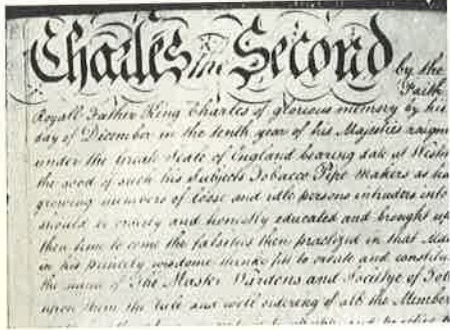 Charles the Second by the
Faith
Royall Father King Charles of glorious memory by his
day of December in the tenth year of his Majesties raign
under the Greate Seale of England bearing date at Westm
the good of such his Subjects Tobacco Pipe Makers as
growing numbers of loose and idle persons intruders into
should be orderly and honestly educated and brought up
then time to come the falsities then practized in that
in his princely wisdome thinke fitt to create and constitu
the name of The Master Wardens and Societye of Tob
upon them the rule and well ordering of all the Member